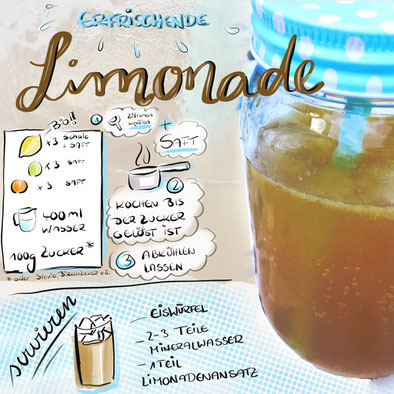 ERFRISCHENDE
Limonade
Bio!!
x3 SCHALE
+ SAFT
x3 SAFT
x3 SAFT
400ml
WASSER
100g ZUCKER*
* oder Stevia Birkenzucker o.ä.
1
Zitronen
+
SAFT
2
KOCHEN BIS
DER ZUCKER
GELÖST IST
3 ABKÜHLEN
LASSEN
servieren
– EISWÜRFEL
– 2-3 TEILE
MINERALWASSER
– 1 TEIL
LIMONADENANSATZ